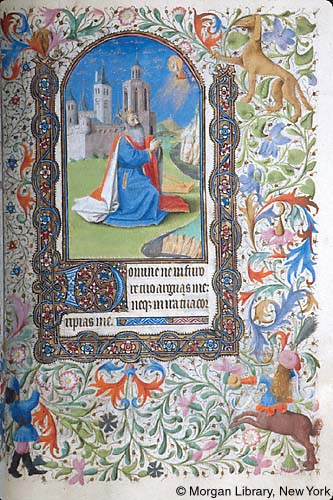 Domine ne in furo
re tuo arguas me
neqz in ira tua cor
ripias me.
© Morgan Library, New York